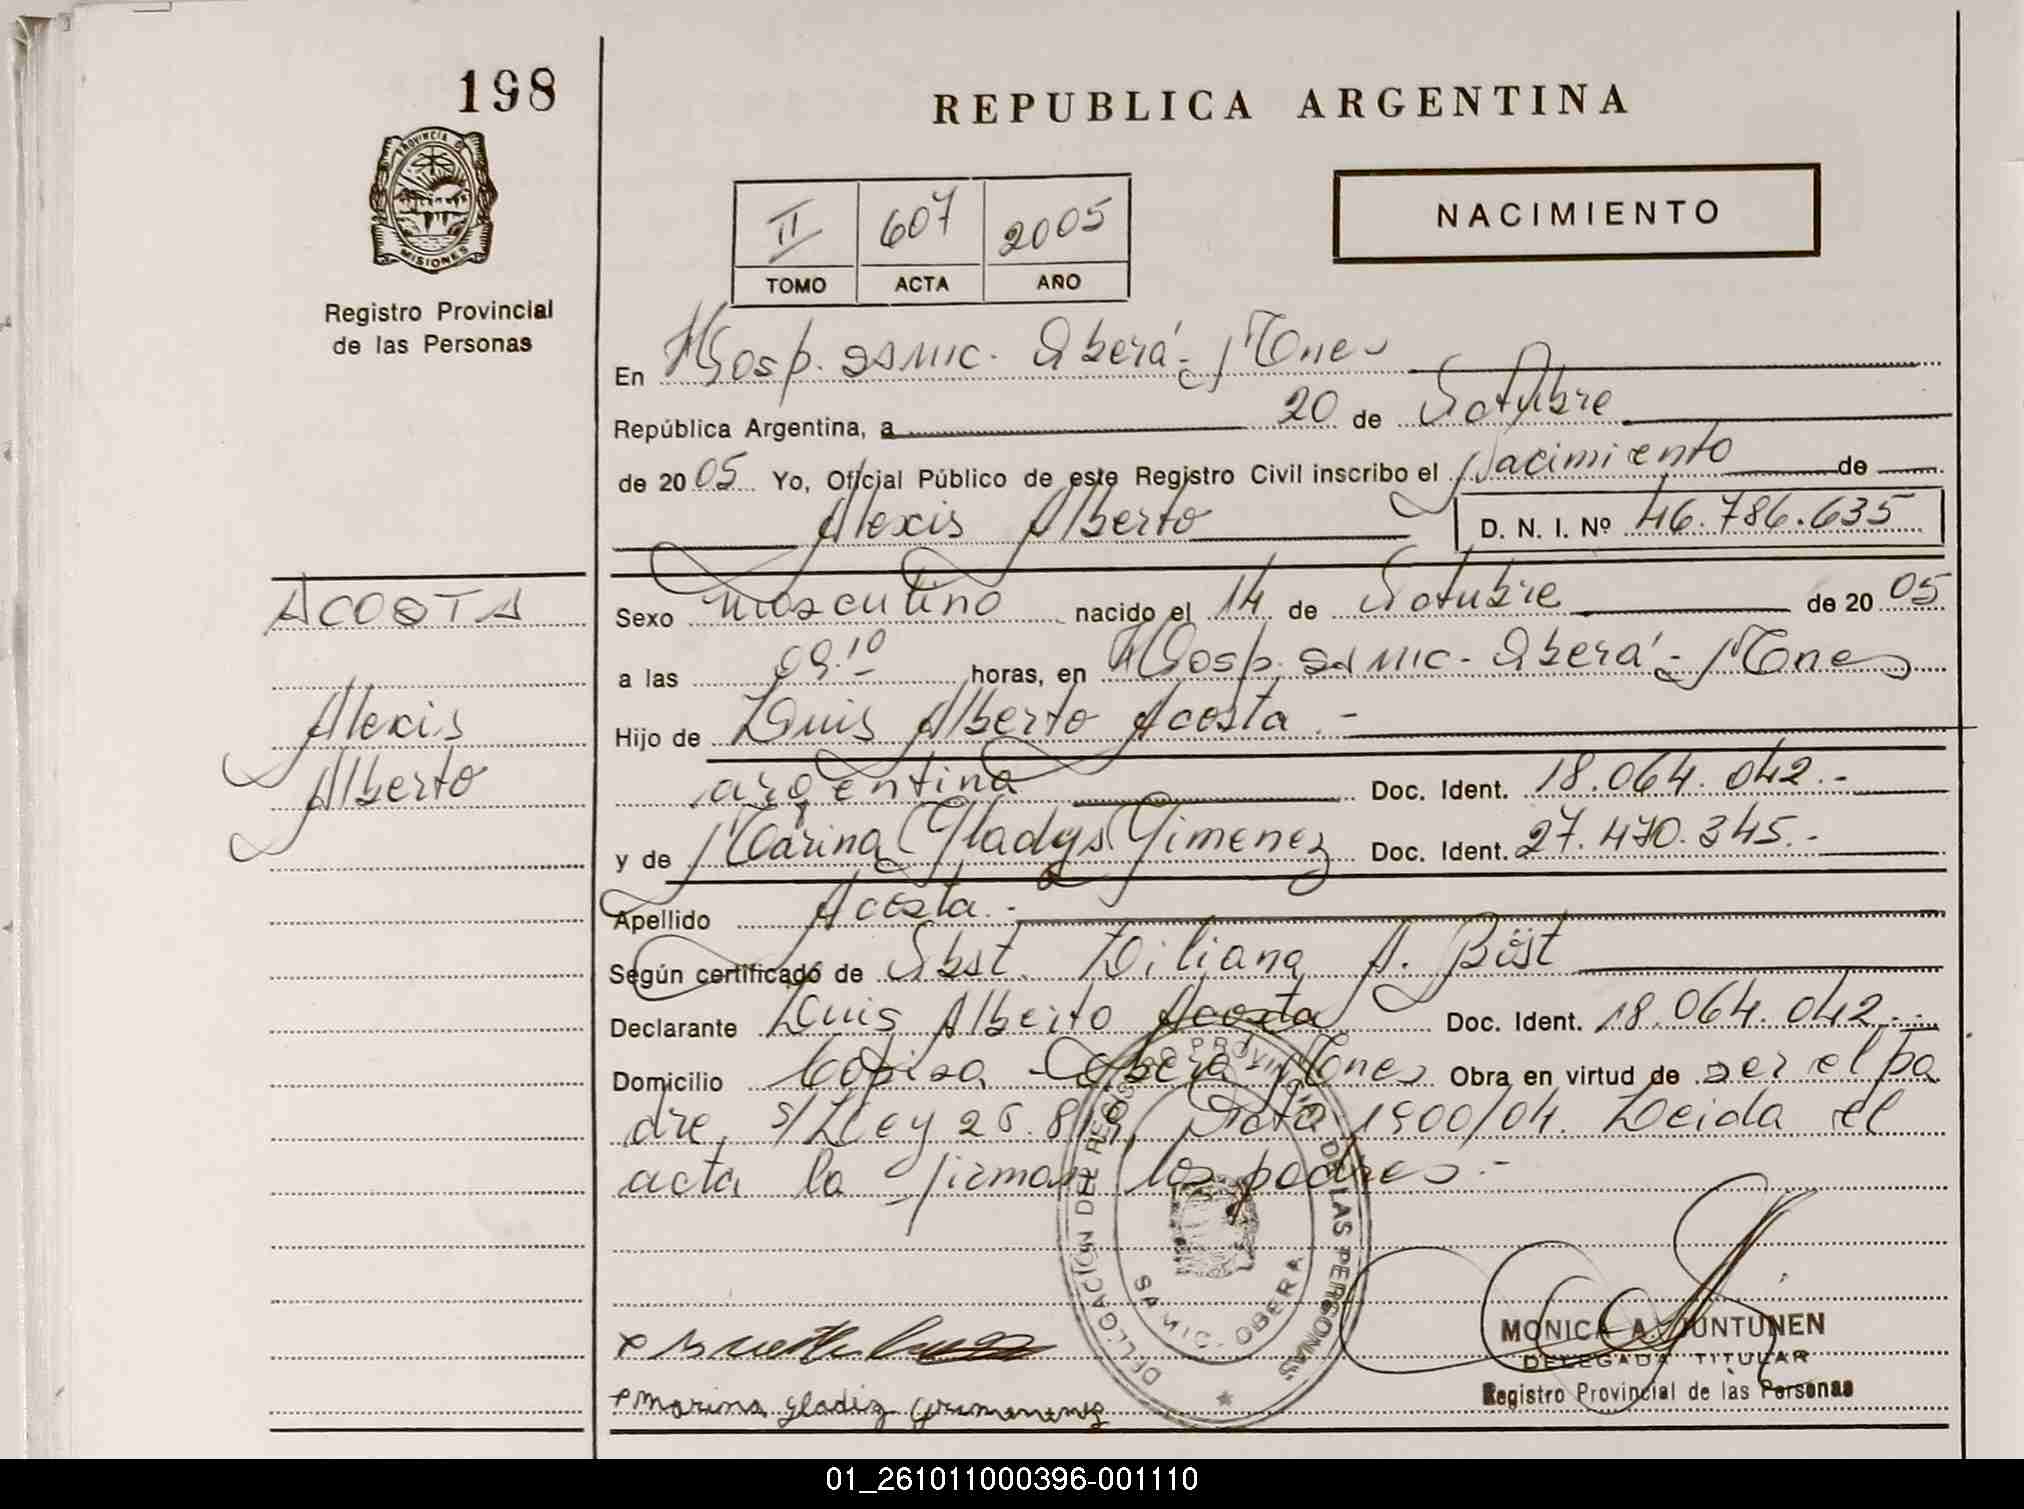 198
PROVINCIA DE
MISIONES
Registro Provincial
de las Personas
REPUBLICA ARGENTINA
II 607 2005
TOMO ACTA AÑO
NACIMIENTO
En Hosp. SAMIC. Oberá - Mnes
República Argentina, a 20 de Octubre
de 2005 Yo, Oficial Público de este Registro Civil inscribo el Nacimiento de
Alexis Alberto D. N. I. Nº 46.786.635
ACOSTA
Alexis
Alberto
Sexo masculino nacido el 14 de Octubre de 2005
a las 09.10 horas, en Hosp. SAMIC - Oberá - Mnes
Hijo de Luis Alberto Acosta.-
argentina Doc. Ident. 18.064.042.-
y de Marina Gladys Gimenez Doc. Ident. 27.470.345.-
Apellido Acosta.-
Según certificado de Obst. Liliana A. Bëst
Declarante Luis Alberto Acosta Doc. Ident. 18.064.042.-
Domicilio Oberá Mnes Obra en virtud de ser el pa
dre, s/Ley 25.819, Dcto 1900/04. Leida el
acta la firman los padres.-
DELEGACION DEL REGISTRO PROVINCIAL DE LAS PERSONAS
SAMIC - OBERA
MONICA A. JUNTUNEN
DELEGADA TITULAR
Registro Provincial de las Personas
Marina gladiz
01_261011000396-001110